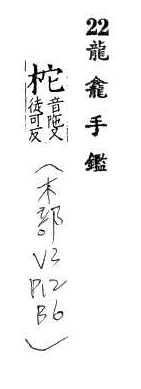 22龍龕手鑑
柁音陁又徒可反
(木部V3P12B6)